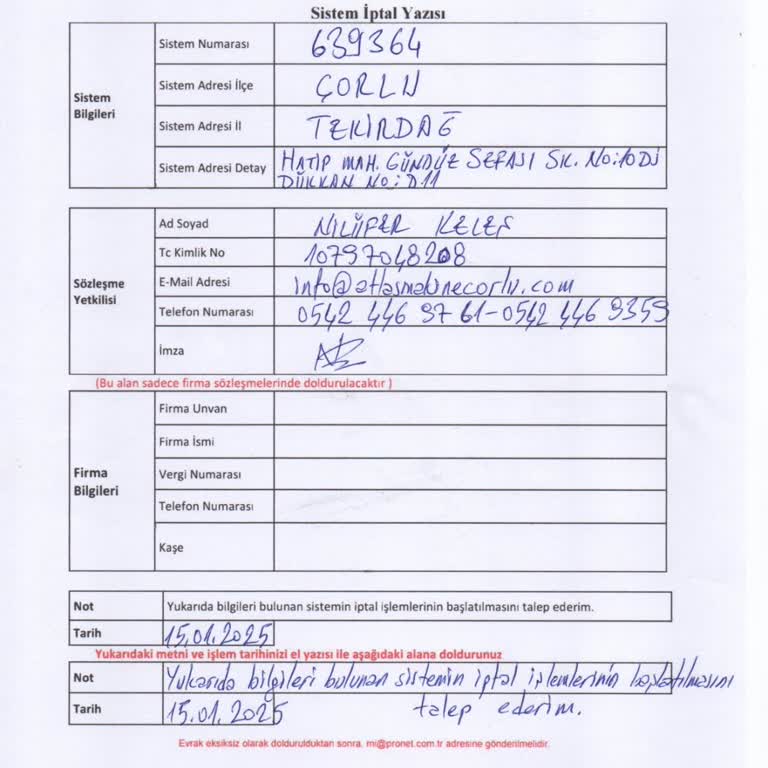 Sistem İptal Yazısı
Sistem Bilgileri
Sistem Numarası 639364
Sistem Adresi İlçe ÇORLU
Sistem Adresi İl TEKİRDAĞ
Sistem Adresi Detay HATIP MAH. GÜNDÜZ SEFASI SK. No:10DJ
DÜKKAN No:D.11
Sözleşme Yetkilisi
Ad Soyad NİLÜFER KELEŞ
Tc Kimlik No 10797048208
E-Mail Adresi info@atlasmakinecorlu.com
Telefon Numarası 0542 446 97 61-0542 446 9359
İmza
(Bu alan sadece firma sözleşmelerinde doldurulacaktır )
Firma Bilgileri
Firma Unvan
Firma İsmi
Vergi Numarası
Telefon Numarası
Kaşe
Not Yukarıda bilgileri bulunan sistemin iptal işlemlerinin başlatılmasını talep ederim.
Tarih 15.01.2025
Yukarıdaki metni ve işlem tarihinizi el yazısı ile aşağıdaki alana doldurunuz
Not Yukarıda bilgileri bulunan sistemin iptal işlemlerinin başlatılmasını
Tarih 15.01.2025 talep ederim.
Evrak eksiksiz olarak doldurulduktan sonra. mi@pronet.com.tr adresine gönderilmelidir.